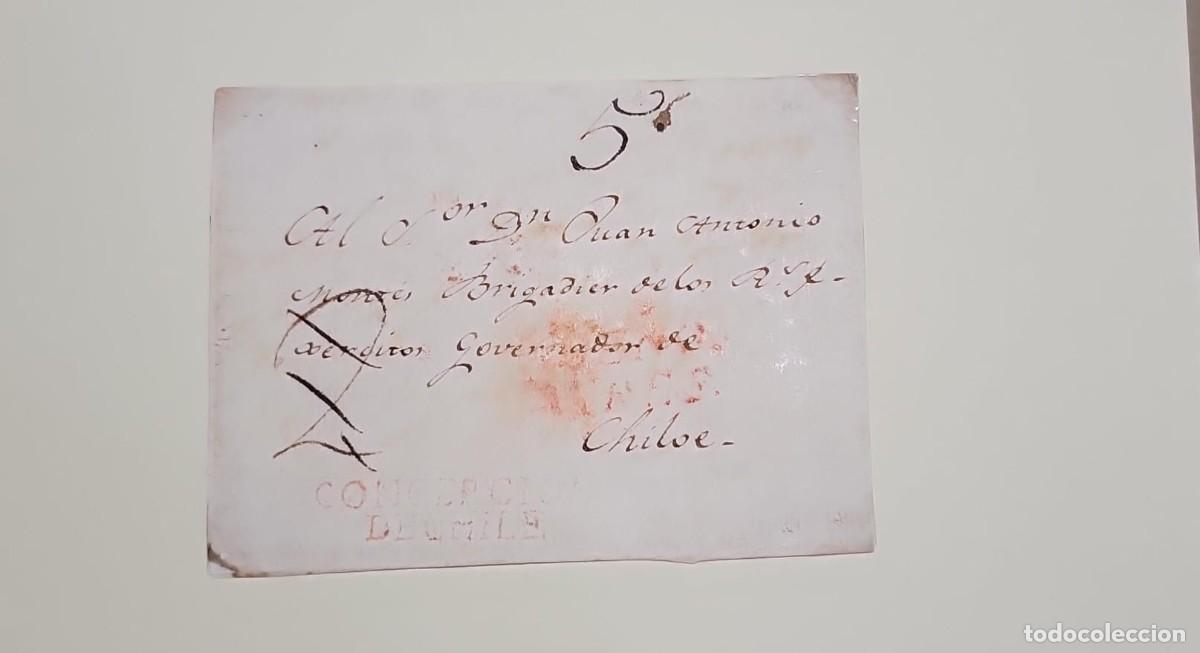 5
Al S.or Dn Juan Antonio
Montes Brigadier de los Rs. Ex-
xercitos Governador de
Chiloe-
CONCEPCION
DE CHILE
todocoleccion